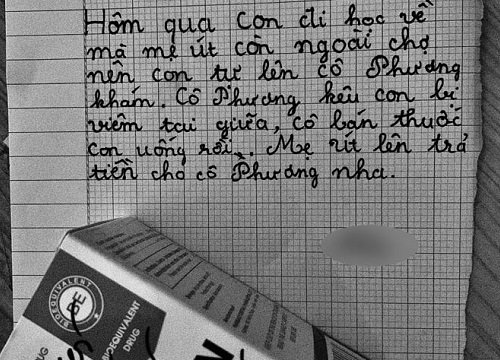 Hôm qua con đi học về
mà mẹ út còn ngoài chợ
nên con tự lên cô Phương
khám. Cô Phương kêu con bị
viêm tai giữa, cô bán thuốc
con uống rồi. Mẹ út lên trả
tiền cho cô Phương nha.
BIOEQUIVALENT
BE
DRUG
BIOEQUIVALENT
DRUG